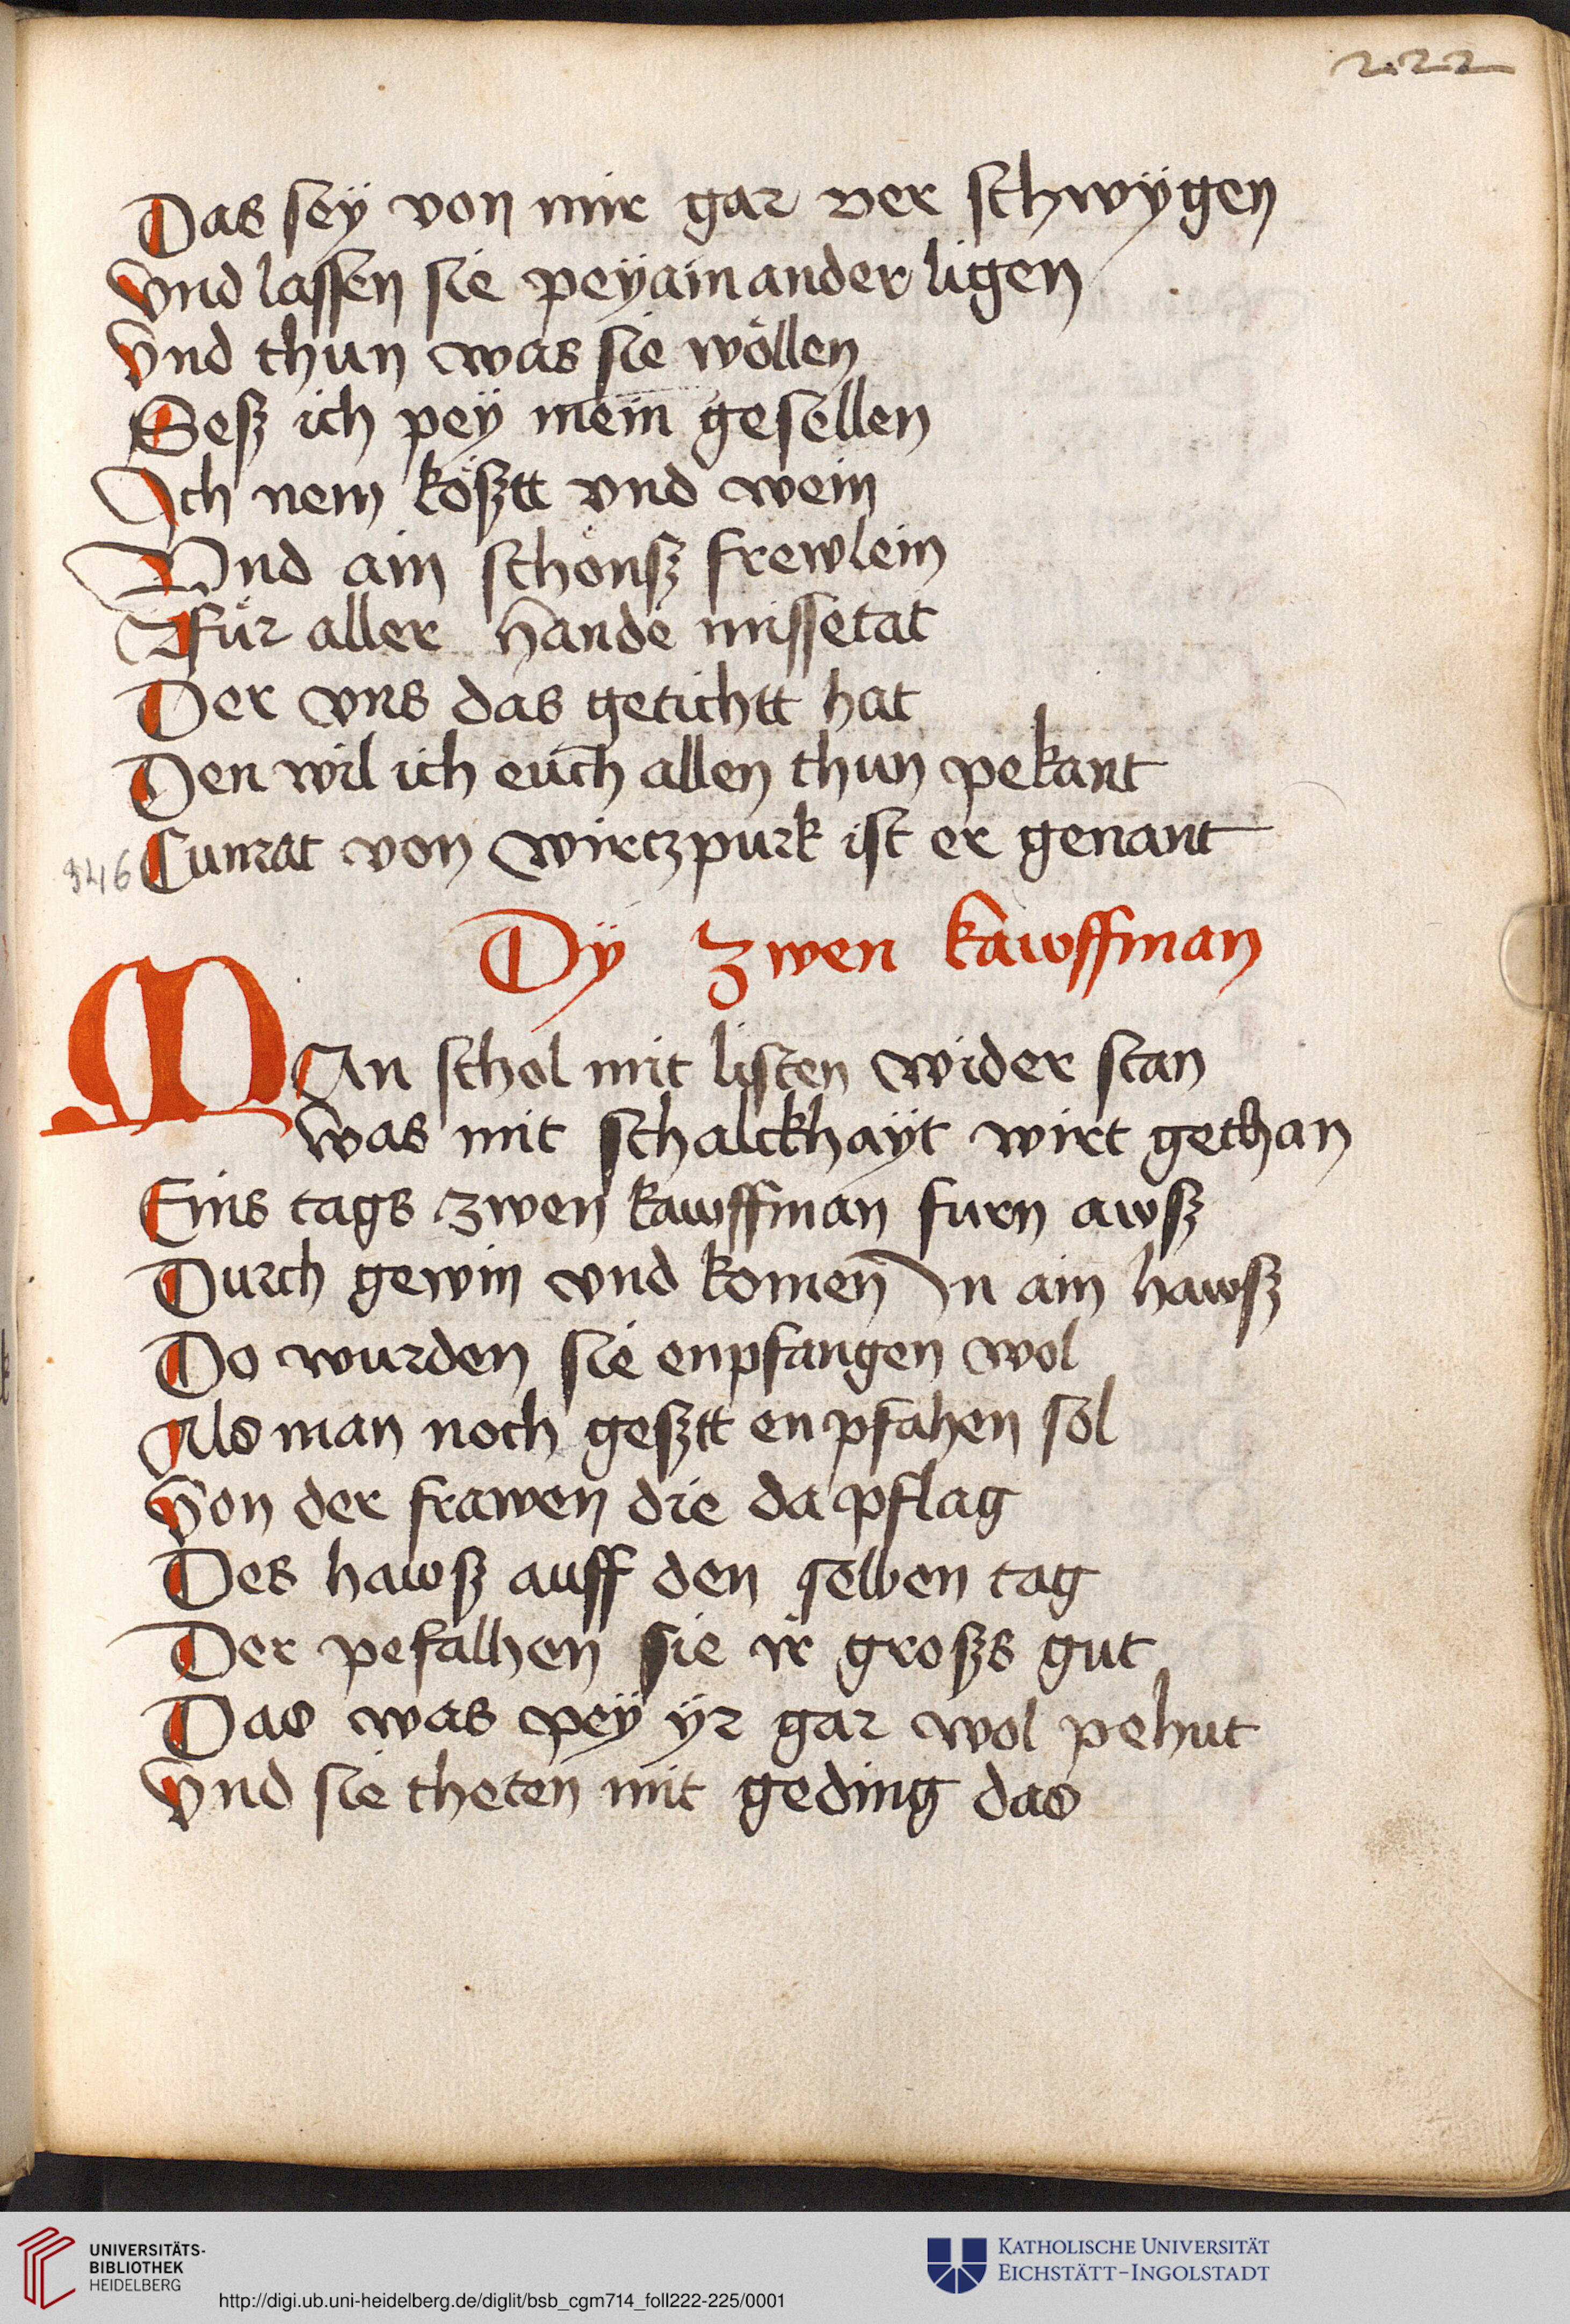 222
Das sey von mir gar ver schwÿgen
Vnd lassen sie peÿainander ligen
Vnd thun was sie wöllen
Sesz ich pey mein gesellen
Ich nem kösztt vnd wein
Vnd ain schönsz frewlein
Für aller hande missetat
Der vns das getichtt hat
Den wil ich euch allen thun pekant
Cunrat von wirczpurk ist er genant
346
Dÿ zwen kawffman
MAn schol mit listen wider stan
was mit schalckhaÿt wirt gethan
Eins tags zwen kawffman furn awsz
Durch gewin vnd komen In ain hawsz
Do wurden sie enpfangen wol
Als man noch gesztt enpfahen sol
Von der frawen die da pflag
Des hawsz auff den selben tag
Der pefalhen sie ir groszs gut
Das was pey ÿr gar wol pehut
Vnd sie theten mit geding das
UNIVERSITÄTS-
BIBLIOTHEK
HEIDELBERG
http://digi.ub.uni-heidelberg.de/diglit/bsb_cgm714_foll222-225/0001
KATHOLISCHE UNIVERSITÄT
EICHSTÄTT-INGOLSTADT